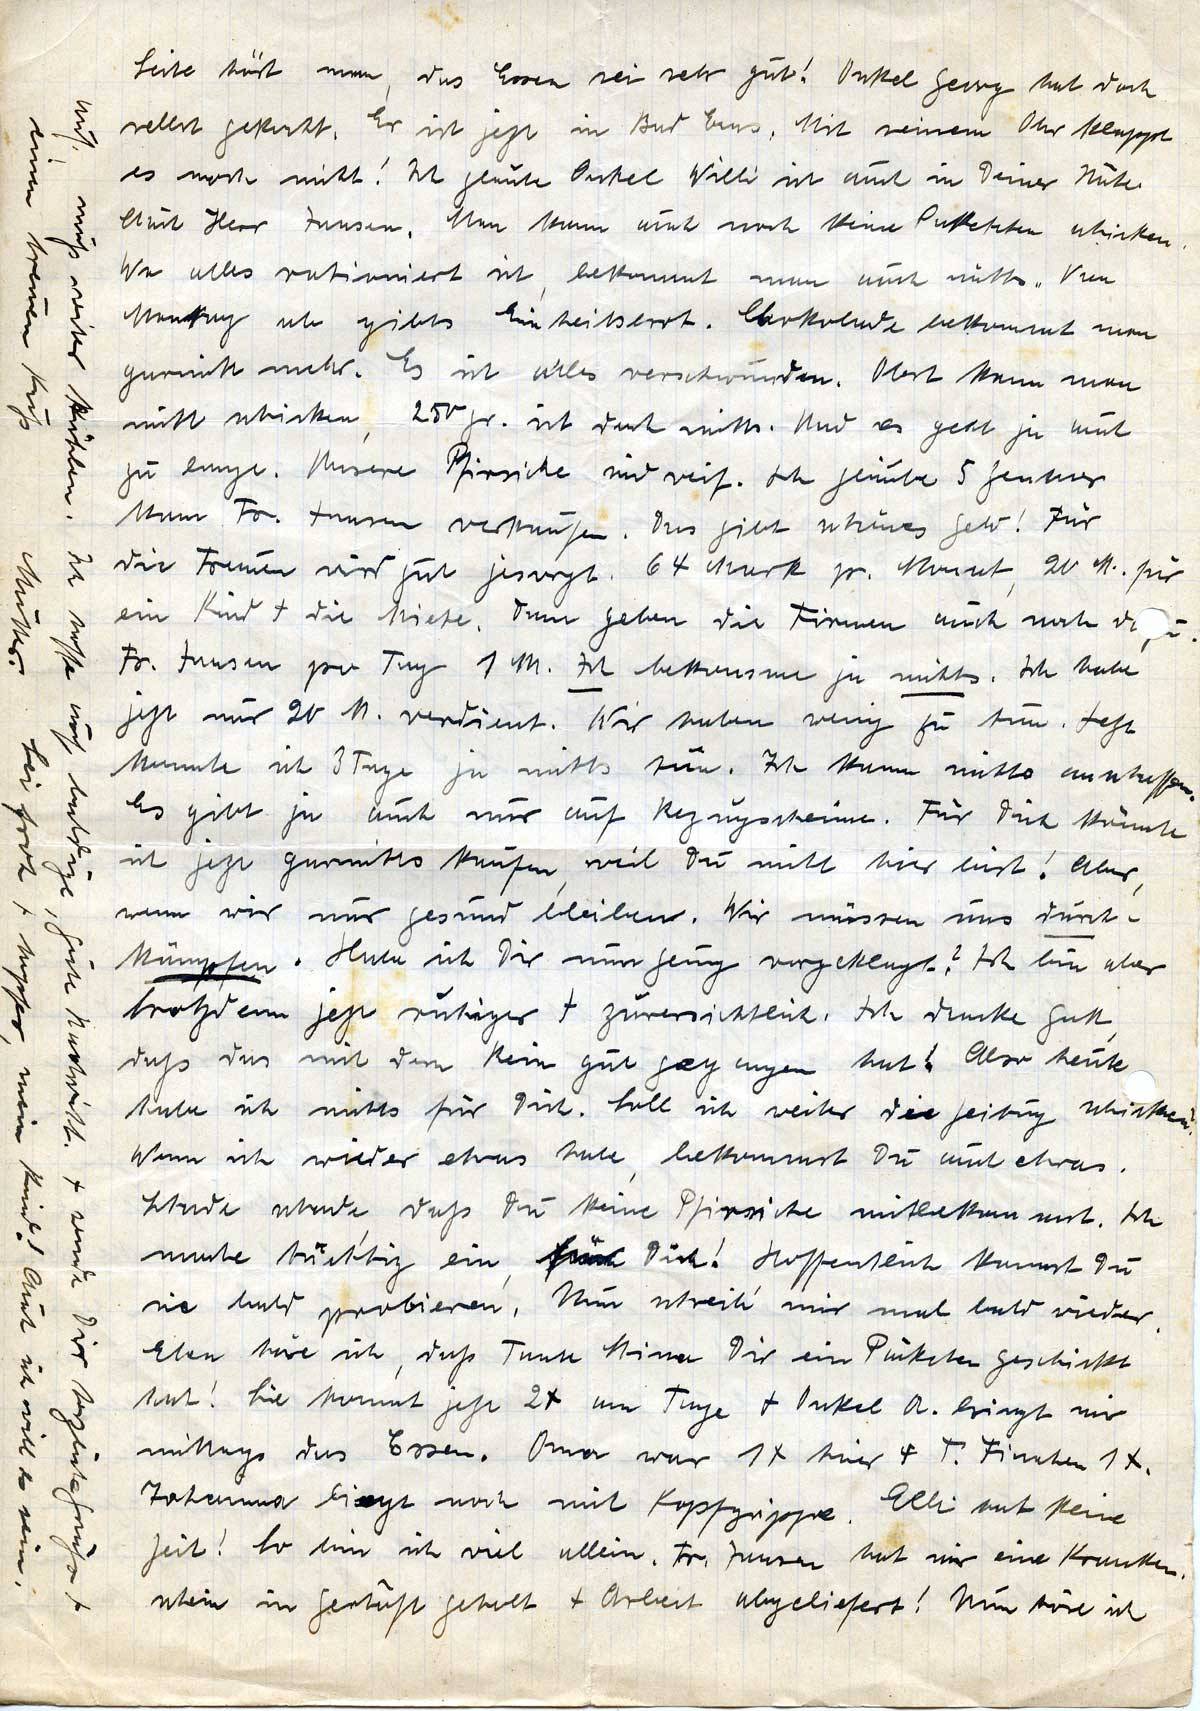 Seite hört man, das Essen sei sehr gut! Onkel Georg hat doch
selbst gekocht. Er ist jetzt in Bad Ems. Mit seinem Ohr klappt
es noch nicht! Ich glaube Onkel Willi ist auch in Deiner Nähe.
Auch Herr Jansen. Man kann auch noch keine Paketchen schicken.
Wo alles rationiert ist, bekommt man auch nichts. Von
Montag ab gibts Einheitsbrot. Chokolade bekommt man
garnicht mehr. Es ist alles verschwunden. Obst kann man
nicht schicken, 250 gr. ist doch nichts. Und es geht ja auch
zu lange. Unsere Pfirsiche sind reif. Ich glaube 5 Zentner
kann Fr. Jansen verkaufen. Das gibt schönes Geld! Für
die Frauen wird gut gesorgt. 64 Mark pr. Monat, 20 M. für
ein Kind + die Miete. Dann geben die Firmen auch noch dazu.
Fr. Jansen pro Tag 1 M. Ich bekomme ja nichts. Ich habe
jetzt nur 20 M. verdient. Wir haben wenig zu tun. Jetzt
konnte ich 3 Tage ja nichts tun. Ich kann nichts anschaffen.
Es gibt ja auch nur auf Bezugscheine. Für Dich könnte
ich jetzt garnichts kaufen, weil Du nicht hier bist! Aber,
wenn wir nur gesund bleiben. Wir müssen uns durch-
kämpfen. Habe ich Dir nun genug vorgeklagt? Ich bin aber
trotzdem jetzt ruhiger + zuversichtlich. Ich danke Gott,
daß das mit dem Bein gut gegangen hat! Also heute
habe ich nichts für Dich. Soll ich weiter die Zeitung schicken?
Wenn ich wieder etwas habe, bekommst Du auch etwas.
Schade, daß Du keine Pfirsiche mitbekommst. Ich
mache tüchtig ein, für Dich! Hoffentlich kannst Du
sie bald probieren. Nun schreib' mir mal bald wieder.
Eben höre ich, daß Tante Mina Dir ein Päckchen geschickt
hat! Sie kommt jetzt 2x am Tage + Onkel A. bringt mir
mittags das Essen. Oma war 1x hier + T. Finchen 1x.
Johanna liegt noch mit Kopfgrippe. Elli hat keine
Zeit! So bin ich viel allein. Fr. Jansen hat mir eine Kranken-
schein im Geschäft geholt + Arbeit abgeliefert! Nun höre ich
auf, muß weiter kühlen. Ich hoffe auf baldige, gute Nachricht. + sende Dir herzliche Grüße +
einen treuen Kuß Mutter. Sei froh + tapfer, mein Kind! Auch ich will es sein.